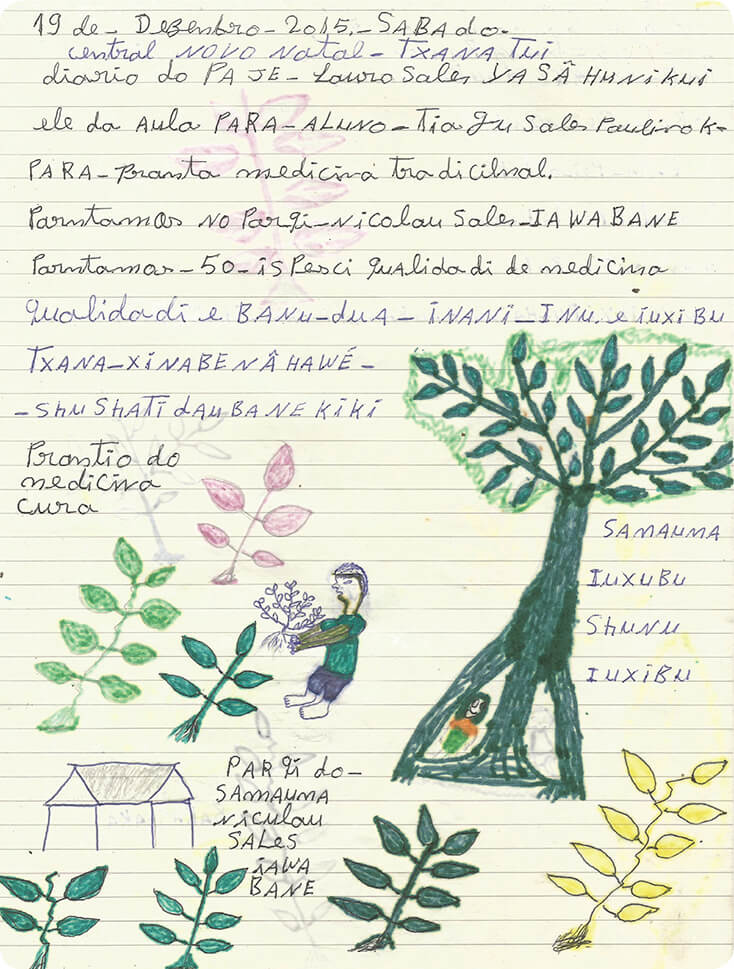 19 de - Dezenbro - 2015. - SABAdo.
central NOVO Natal - TXANA TUI
diario do PAJE - Lauro Sales YASÂ HUNIKUI
ele da AULA PARA - ALUNO - Tia Gu Sales Paulino K-
PARA - Pranta medicina tradicilnal.
Parntamos NO Parqi - Nicolau Sales - IAWA BANE
Parntamos - 50 - isPesci qualidadi de medicina
qualidadi e BANU - dua - INANI - INU. e iuxiBU
TXANA - XINABENÂ HAWÉ -
- SHU SHATI dAU BANE KIKI
Prantio do
medicina
cura
SAMAUMA
IUXUBU
SHUNU
IUXIBU
PARQi do -
SAMAUMA
Niculau
SALES
iAWA
BANE